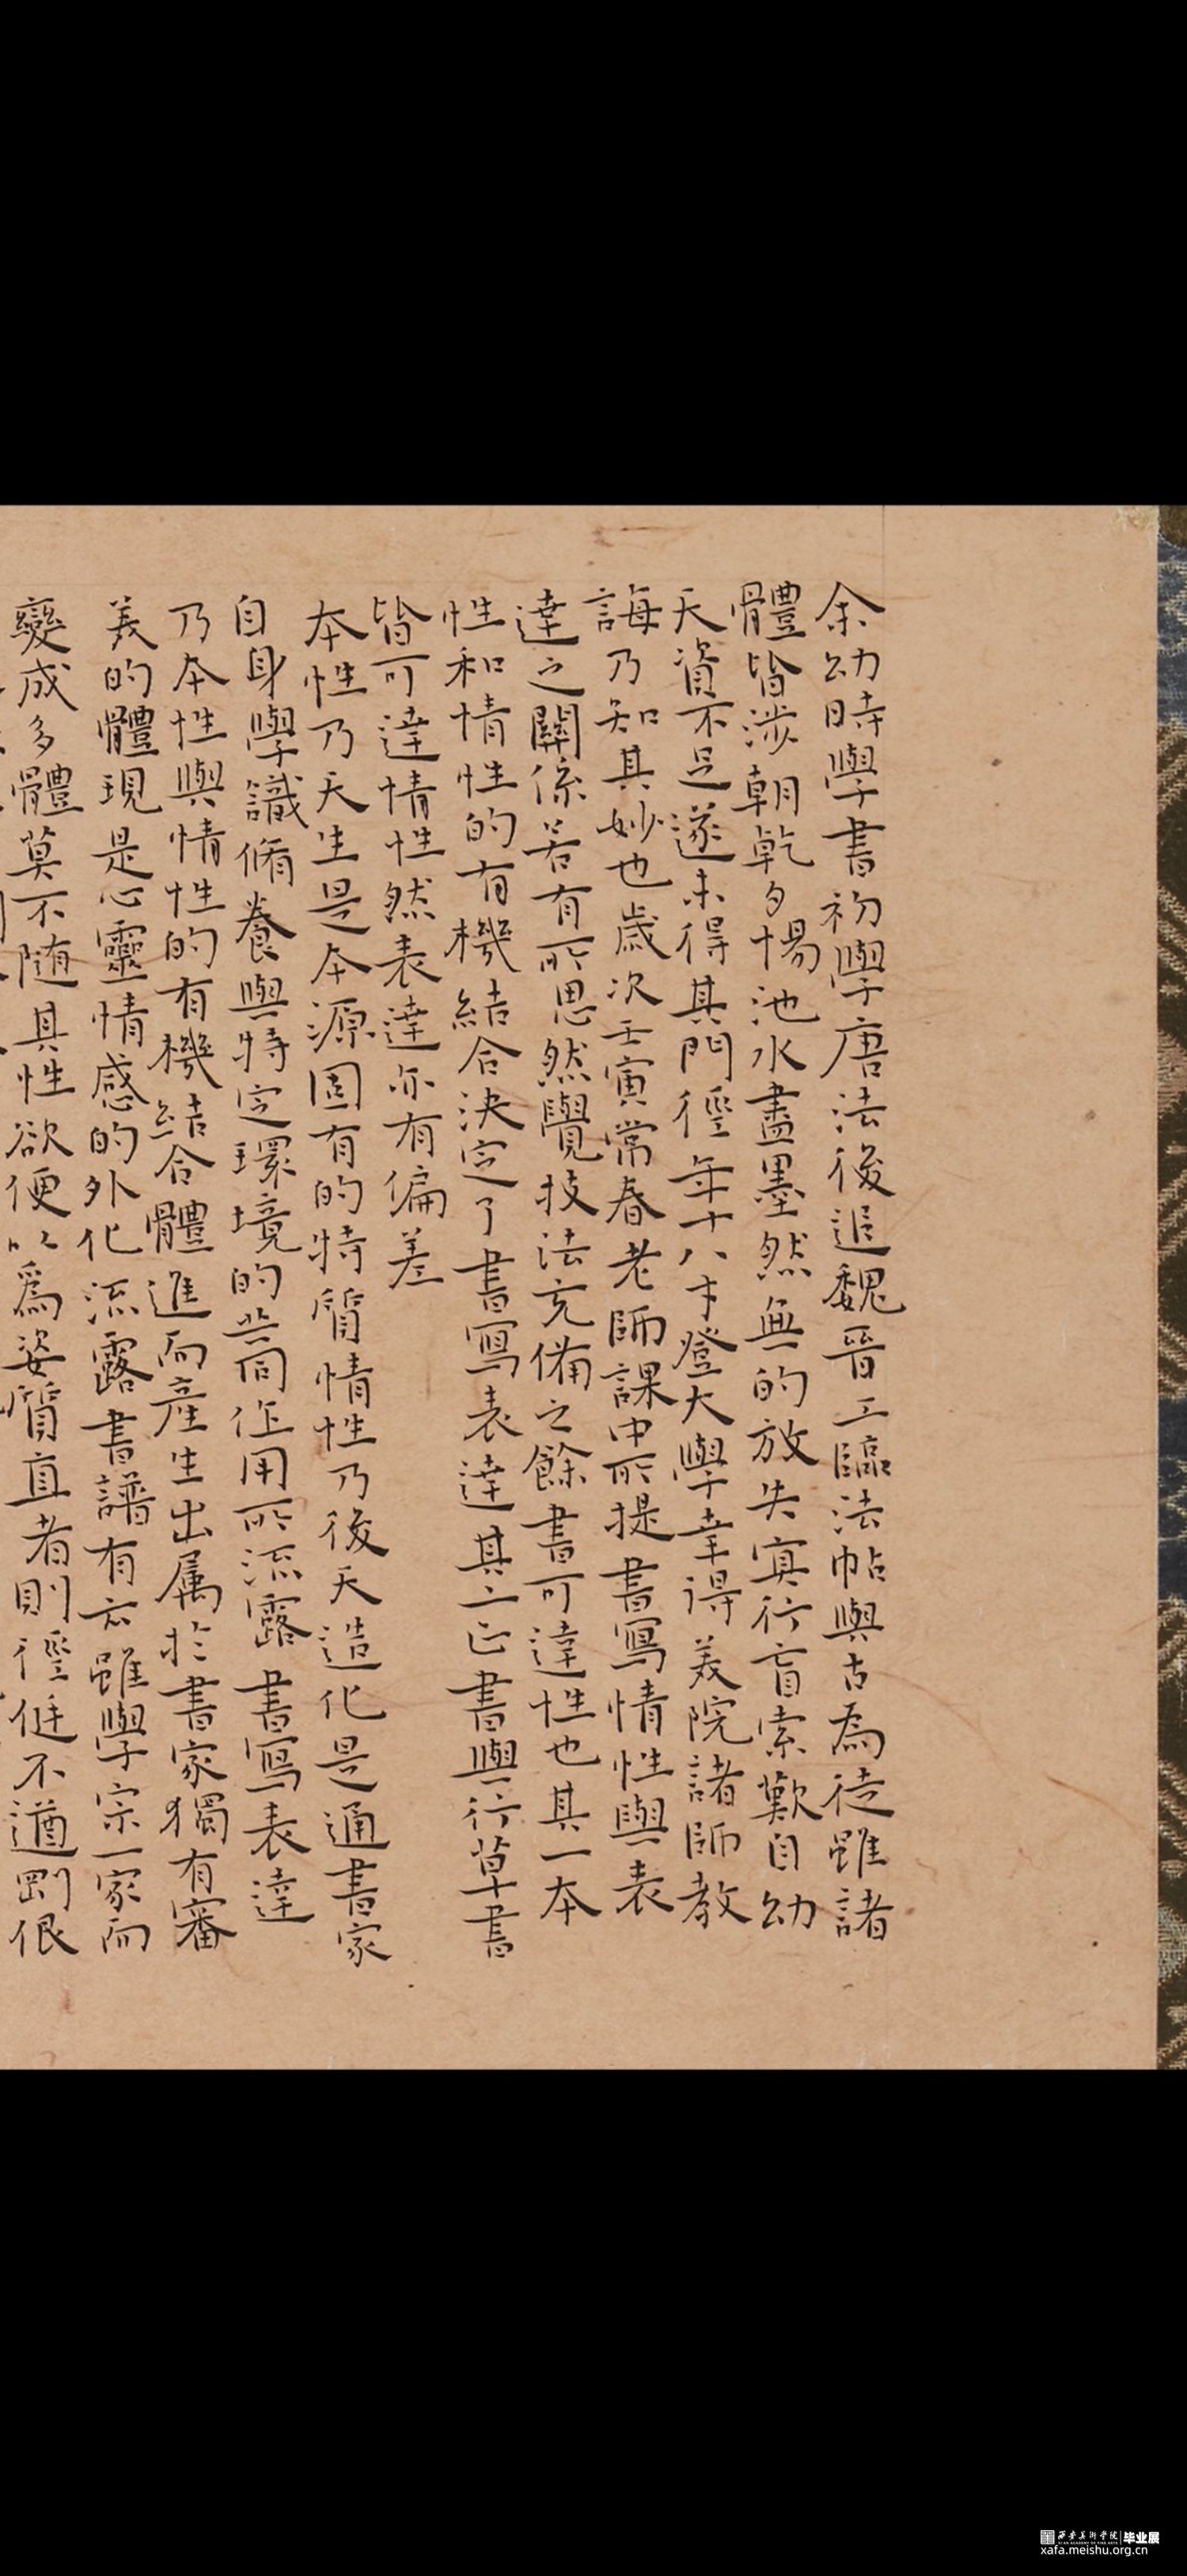 余幼時學書初學唐法後追魏晉工臨法帖與古為徒雖諸
體皆涉朝乾夕惕池水盡墨然無的放失寘行盲索歎自幼
天資不足遂未得其門徑年十八才登大學幸得美院諸師教
誨乃知其妙也歲次壬寅常春老師課中所提書寫情性與表
達之關係若有所思然覺技法克備之餘書可達性也其一本
性和情性的有機結合決定了書寫表達其二正書與行草書
皆可達情性然表達亦有偏差
本性乃天生是本源固有的特質情性乃後天造化是通書家
自身學識脩養與特定環境的共同作用所流露書寫表達
乃本性與情性的有機結合體進而產生出属於書家獨有審
美的體現是心靈情感的外化流露書譜有云雖學宗一家而
變成多體莫不随其性欲便以爲姿質直者則徑侹不遒剛佷
西安美術學院 毕业展
XI'AN ACADEMY OF FINE ARTS
xafa.meishu.org.cn